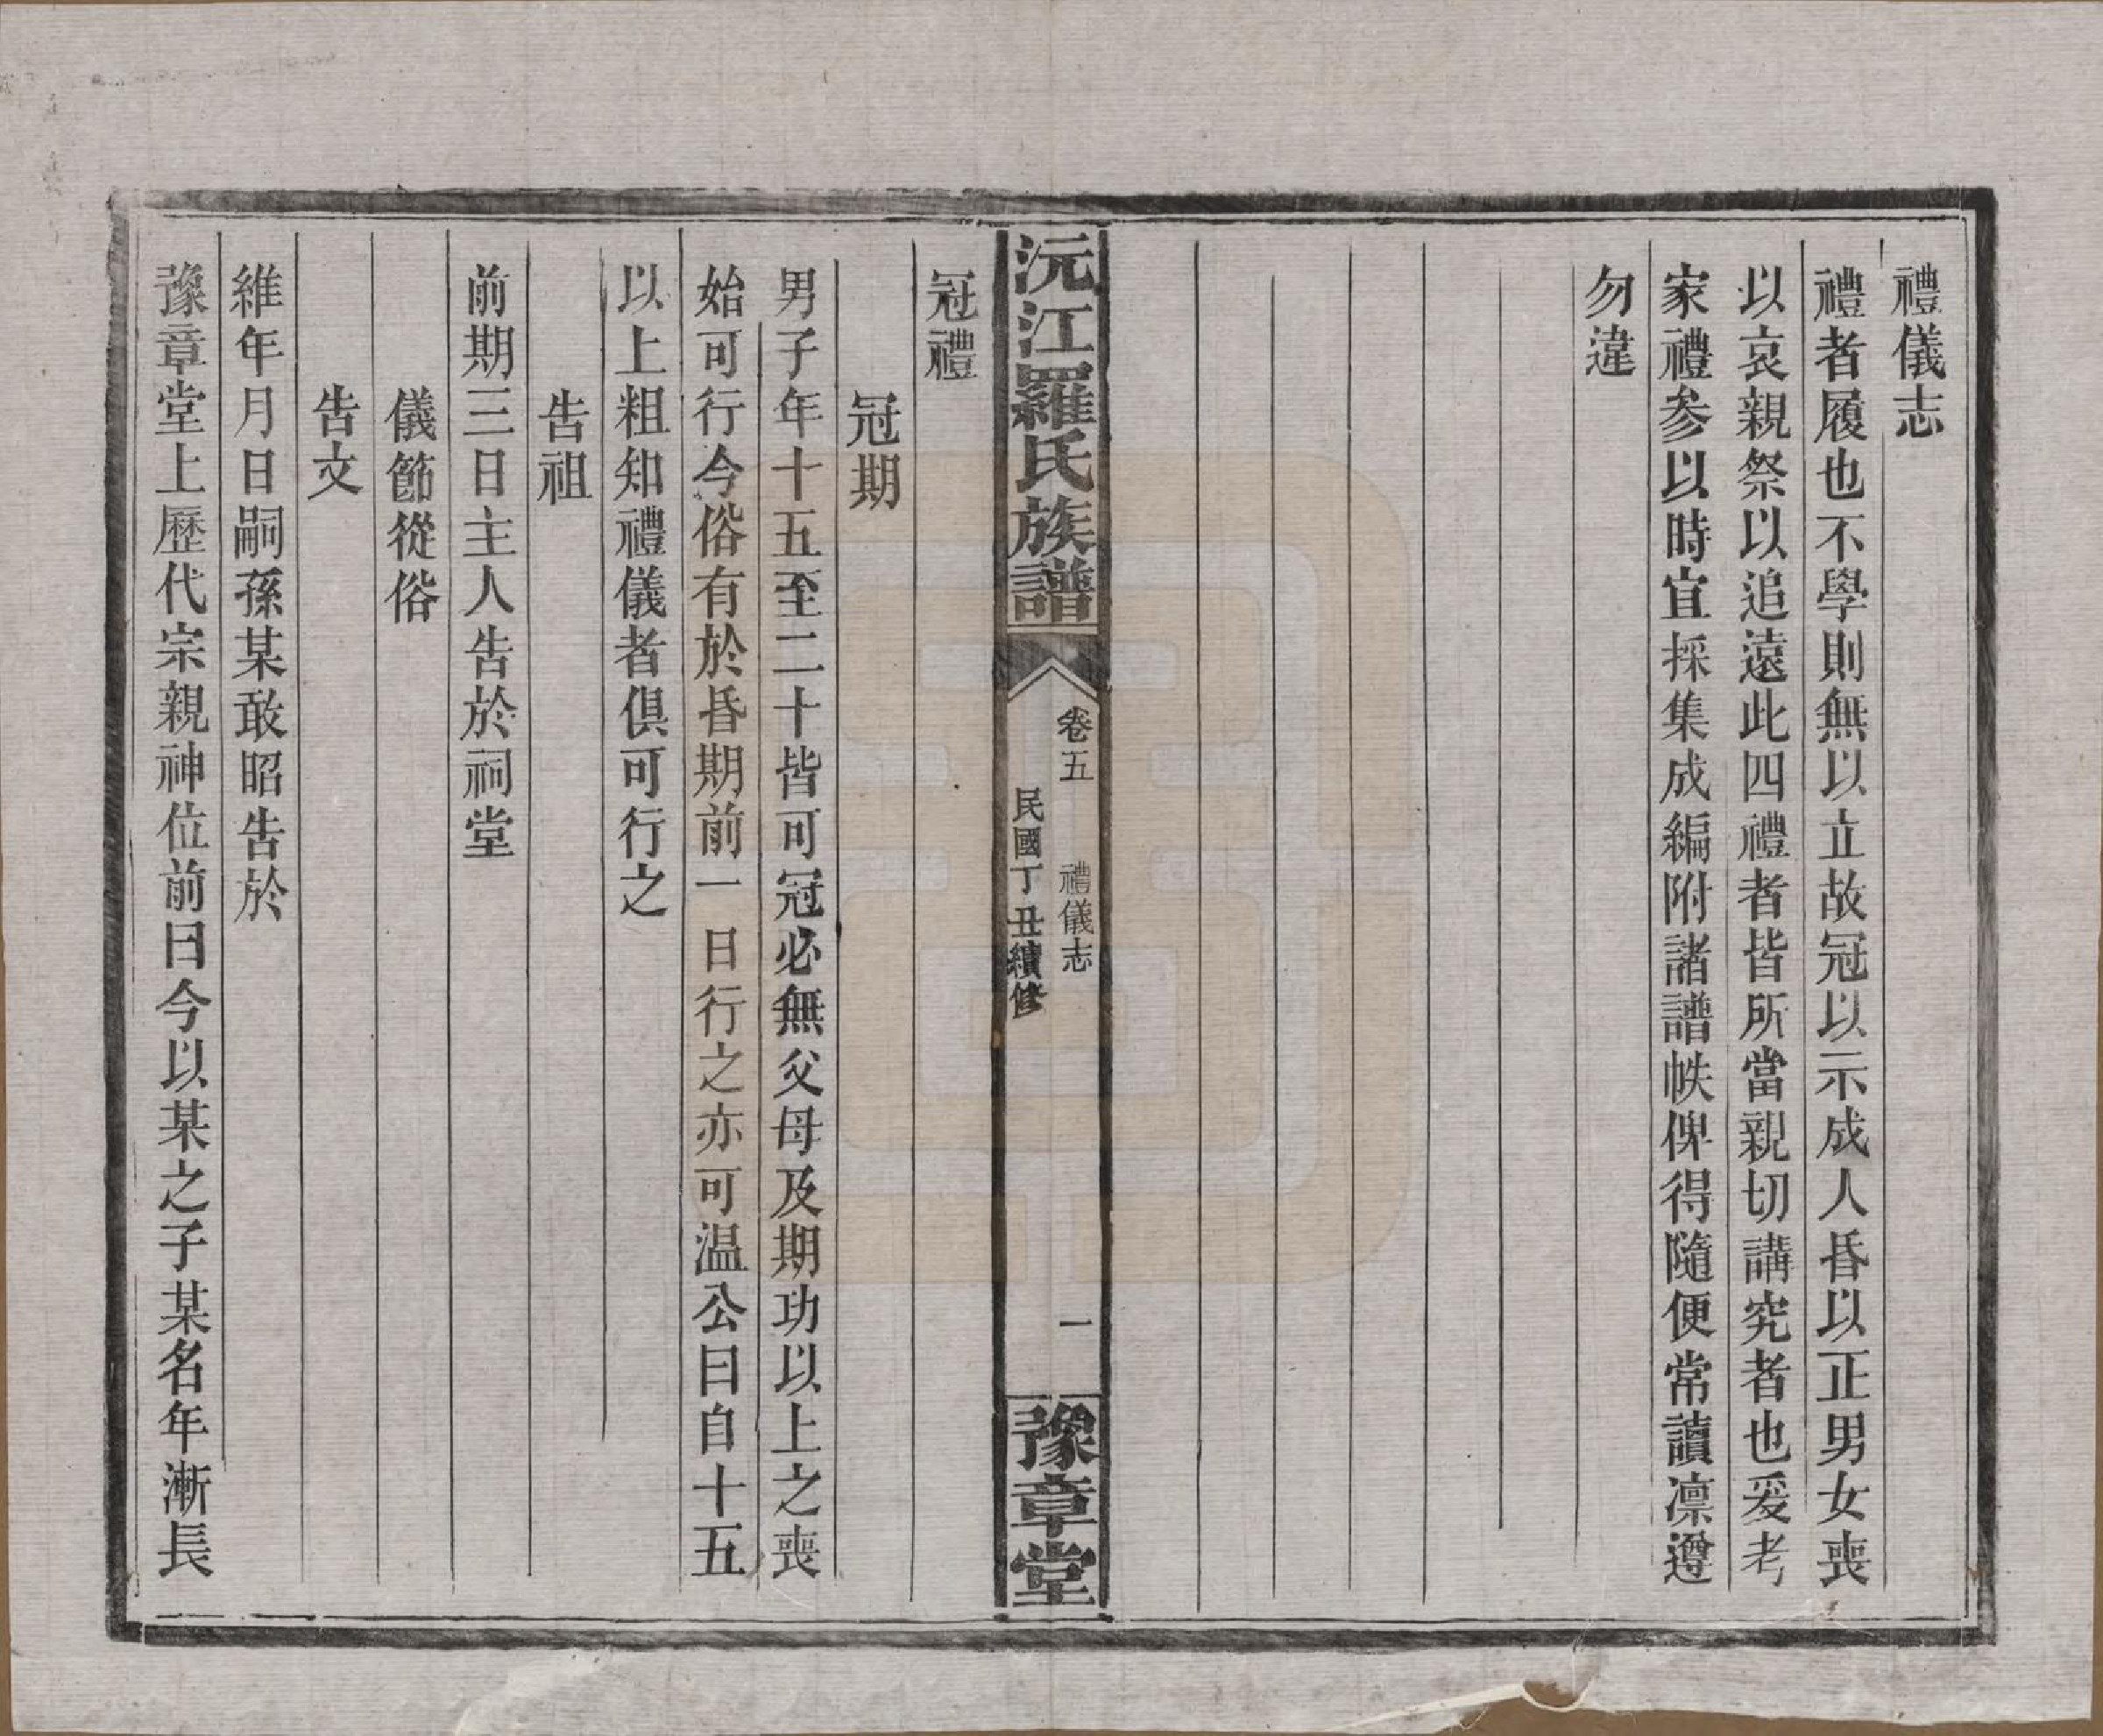 禮儀志
禮者履也不學則無以立故冠以示成人昏以正男女喪
以哀親祭以追遠此四禮者皆所當親切講究者也爰考
家禮參以時宜採集成編附諸譜帙俾得隨便常讀凛遵
勿違
沅江羅氏族譜
卷五 禮儀志 一
民國丁丑續修
豫章堂
冠禮
冠期
男子年十五至二十皆可冠必無父母及期功以上之喪
始可行今俗有於昏期前一日行之亦可温公曰自十五
以上粗知禮儀者俱可行之
告祖
前期三日主人告於祠堂
儀節從俗
告文
維年月日嗣孫某敢昭告於
豫章堂上歷代宗親神位前曰今以某之子某名年漸長